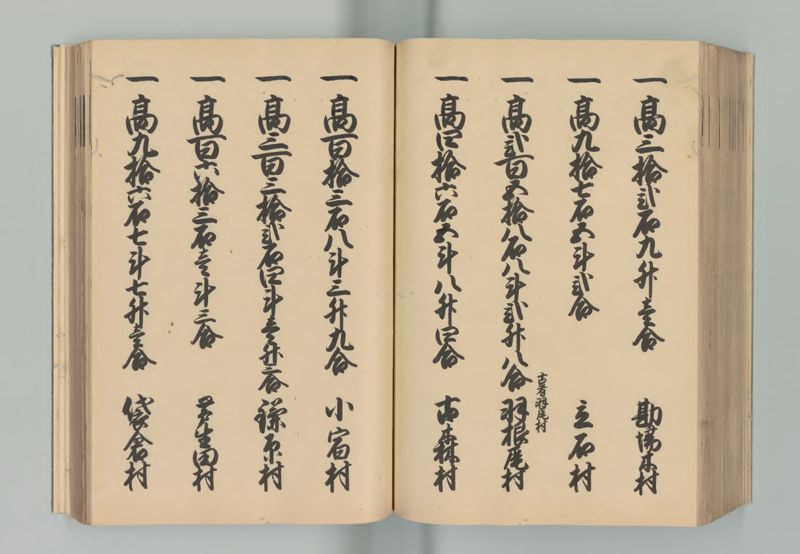 一 高三拾弐石九升壱合 勘場木村
一 高九拾七石五斗弐合 立石村
一 高弐百五拾八石八斗弐升八合 古者羽尾村 羽根尾村
一 高四拾六石五斗八升四合 古森村
一 高百拾三石八斗三升九合 小宿村
一 高三百三拾弐石四斗壱升三合 鎌原村
一 高百六拾三石壱斗三合 芦生田村
一 高九拾六石七斗七升壱合 袋倉村